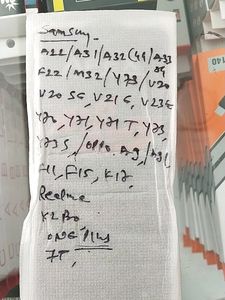 Samsung -
A22/A31/A32(4G/A33
5G
F22/M32/Y73/V20
V20 SE, V21E, V23E
Y70, Y71, Y71T, Y73,
Y73S,/OPPO. A9/A91,
A11, F15, K17,
Realme
X2 Pro
ONE Plus
7T,
140